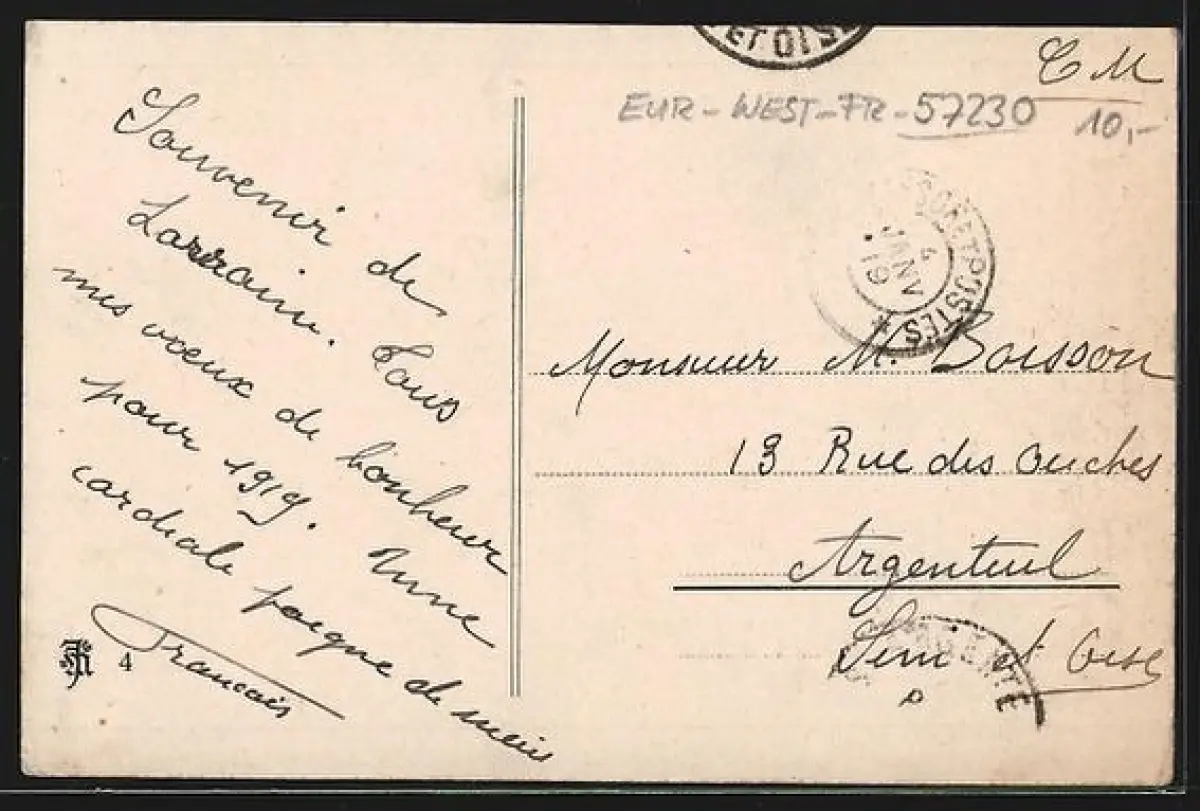 Souvenir de
Lorraine. Tous
mes voeux de bonheur
pour 1919. Une
cordiale poigne de main
Francais
4
ET OISE
C M
EUR-WEST-FR-57230
10,-
ET POSTES
4
JANV
19
Monsieur M. Boisson
13 Rue des Ouches
Argenteuil
Seine et Oise